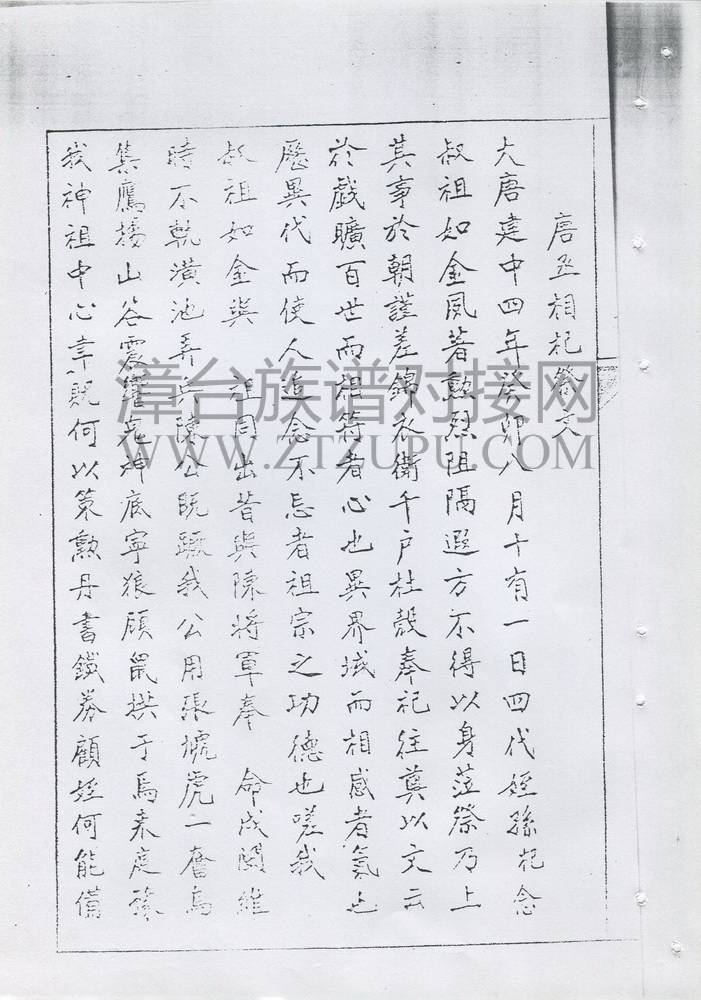 唐丞相杞祭文
大唐建中四年癸卯八月十有一日四代姪孫杞念
叔祖如金夙著勲烈阻隔遐方不得以身蒞祭乃上
其事於朝謹差錦衣衛千戶杜殼奉祀往奠以文云
於戲曠百世而相符者心也異界域而相感者氣也
歷異代而使人追念不忘者祖宗之功德也嗟我
叔祖如金與 祖同出昔與陳將軍奉 命戍閩維
時不軌潢池弄兵陳公既蹶我公用張虓虎一奮鳥
集鷹揚山谷震疊鬼神底寧狼顧鼠
我神祖中心 既何以策勲丹書鐵券顧姪何能備
漳台族谱对接网
WWW.ZTZUPU.COM